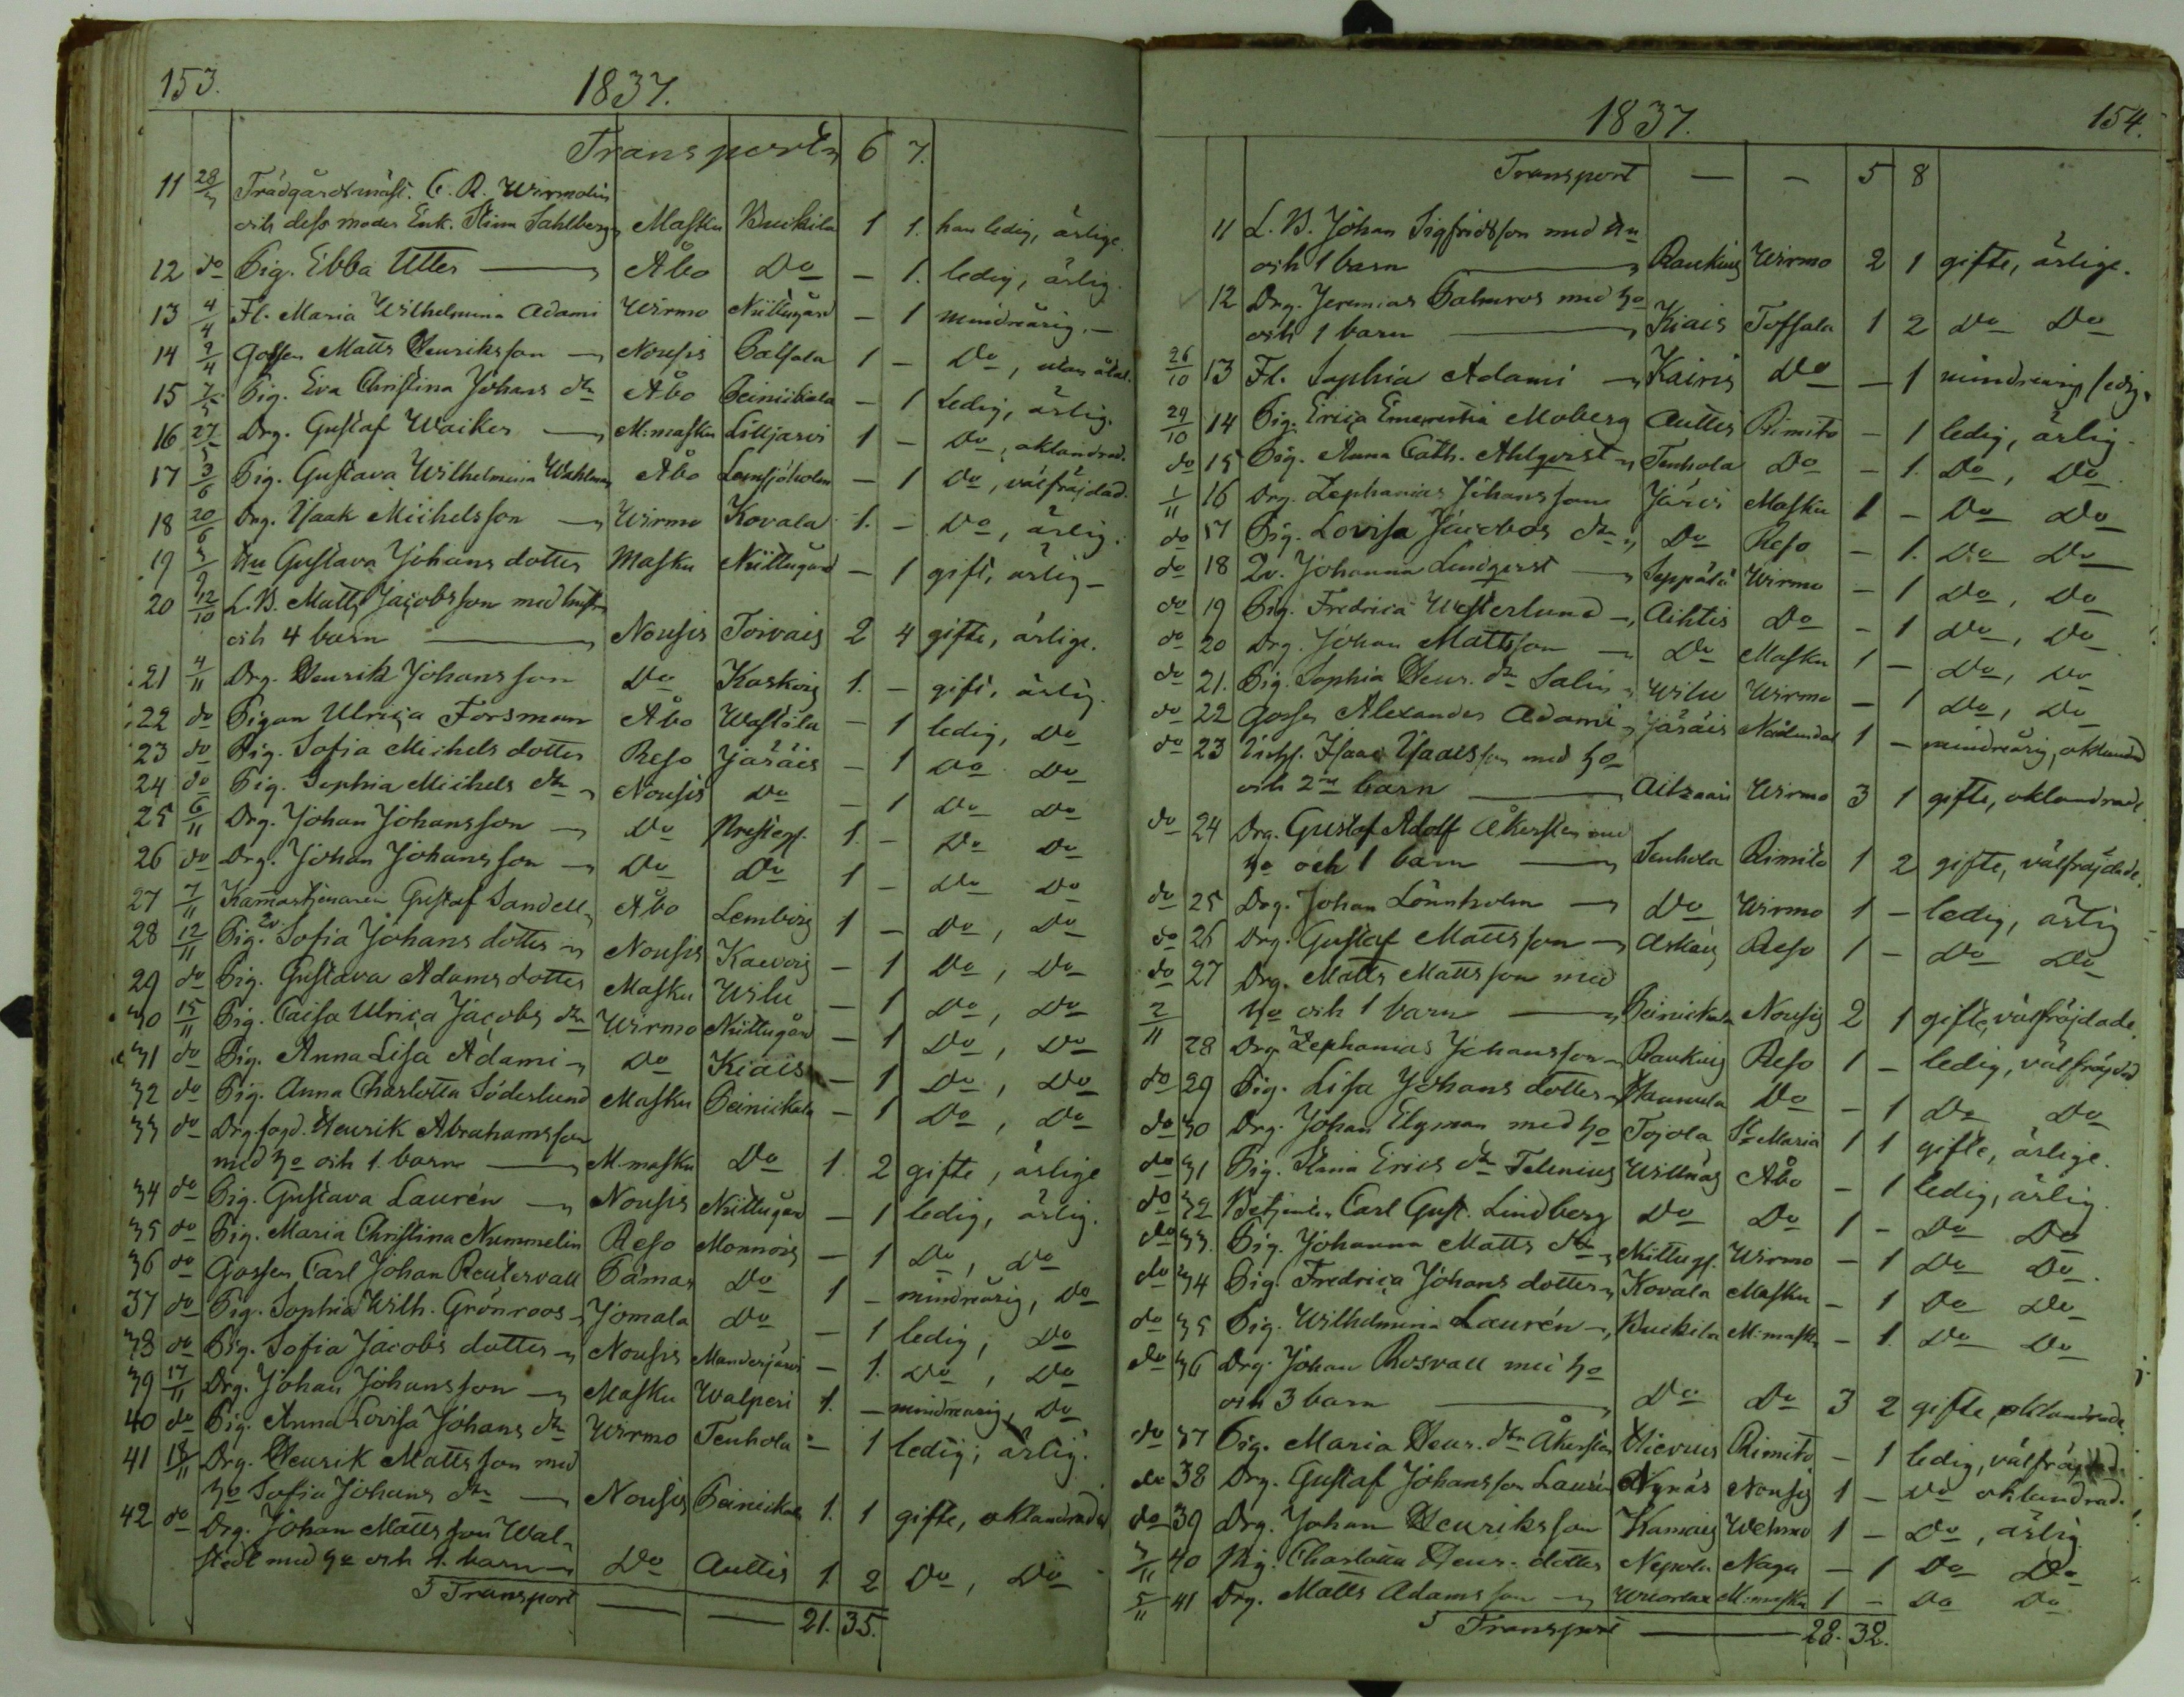 153.
1837.
Transport 6 7.
11 28/3 Trädgårdsmäst. C. R. Wirmolin
och dess moder Enk. Stina Sahlberg Masku Kuckila 1 1. han ledig, ärlige.
12 do Pig. Ebba Utter Åbo Do — 1. ledig, ärlig.
13 4/4 Fl. Maria Wilhelmina Adami Wirmo Niittugård — 1 mindreårig. —
14 9/4 Gossen Matts Henriksson Nousis Palsala 1 — Do, utan
15 7/5 Pig. Eva Christina Johans dtr Åbo Peinickala — 1 Ledig, ärlig.
16 27/5 Drg. Gustaf Waiker M:masku Liljarvi 1 — Do, oklandrad.
17 3/6 Pig. Gustava Wilhelmina Wahlman Åbo Lemsjöholm — 1 Do, välfräjdad.
18 20/6 Drg. Isaak Michelsson Wirmo Kovala 1. — Do, ärlig.
19 3/9 Hu Gustava Johans dotter Masku Niittugård — 1 gift, ärlig —
20 12/10 L. B. Matts Jacobsson med hust
och 4 barn Nousis Toivais 2 4 gifte, ärlige.
21 4/11 Drg. Henrik Johansson Do Kaskois 1. — gift, ärlig.
22 do Pigan Ulrica Forsman Åbo Wastila — 1 ledig, Do
23 do Pig. Sofia Michels dotter Reso Järäis — 1 Do Do
24 do Pig. Sophia Michels dtr Nousis Do — 1 Do Do
25 6/11 Drg. Johan Johansson Do Prestegs. 1. — Do Do
26 do Drg. Johan Johansson Do Do 1 — Do Do
27 7/11 Kamartjenaren Gustaf Sandell Åbo Lembois 1 — Do, Do
28 12/11 Pig. Sofia Johans dotter Nousis Kaevois — 1 Do, Do
29 do Pig. Gustava Adams dotter Masku Wilu — 1 Do, Do
30 15/11 Pig. Caisa Ulrica Jacobs dtr Wirmo Niittugård — 1 Do, Do
31 do Pig. Anna Lisa Adami Do Kiais — 1 Do, Do
32 do Pig. Anna Charlotta Söderlund Masku Peinickala — 1 Do, Do
33 do Drg. fogd. Henrik Abrahamsson
med ho och 1. barn M.masku Do 1. 2 gifte, ärlige
34 do Pig. Gustava Laurén Nousis Niittugård — 1 ledig, ärlig.
35 do Pig. Maria Christina Nummelin Reso Monnois — 1 Do, Do
36 do Gossen Carl Johan Reutervall Pämar Do 1 — mindreårig, Do
37 do Pig. Sophia Wilh. Grönroos Jomala Do — 1 ledig, Do
38 do Pig. Sofia Jacobs dotter Nousis Manderjärvi — 1. Do, Do
39 17/11 Drg. Johan Johansson Masku Walperi 1. — mindreårig, Do
40 do Pig. Anna Lovisa Johans dtr Wirmo Tenhola — 1 ledig, ärlig.
41 18/11 Drg. Henrik Mattsson med
ho Sofia Johans dtr Nousis Peinickala 1. 1 gifte, oklandrade
42 do Drg. Johan Mattsson Wal-
stedt med ho och 1. barn Do Auttis 1. 2 Do, Do
Transport 21. 35.
1837. 154.
Transport — — 5 8
11 L. B. Johan Sigfridsson med Hu
och 1 barn Raukuis Wirmo 2 1 gifte, ärlige.
12 Drg. Jeremias Palmros med ho
och 1 barn Kiais Tofsala 1 2 do Do
26/10 13 Fl. Sophia Adami Kairis Do — 1 mindreårig ledig.
29/10 14 Pig. Erica Emerentia Moberg Auttis Rimito — 1 ledig, ärlig.
do 15 Pig. Anna Cath. Ahlqvist Tenhola Do — 1. Do, Do.
1/11 16 Drg. Zephanias Johansson Järvi Masku 1 — Do Do
do 17 Pig. Lovisa Jacobs dtr Do Reso — 1. Do Do
do 18 Qv. Johanna Lindqvist Seppälä Wirmo — 1 Do, Do
do 19 Pig. Fredrica Westerlund Aihtis Do — 1 Do, Do
do 20 Drg. Johan Mattsson Do Masku 1 — Do, Do
do 21. Pig. Sophia Henr. dtr Salin Wilu Wirmo — 1 Do, Do
do 22 Gossen Alexander Adami Järäis Nådendal 1 — mindreårig, oklandrad
do 23 Isaac Isaacsson med ho
och 2ne barn Aitzaari Wirmo 3 1 gifte, oklandrade
do 24 Drg. Gustaf Adolf Åkersten med
ho och 1 barn Tenhola Rimito 1 2 gifte, välfräjdade.
do 25 Drg. Johan Lönnholm Do Wirmo 1 — ledig, ärlig
do 26 Drg. Gustaf Mattsson Askais Reso 1 — Do Do
do 27 Drg. Matts Mattsson med
ho och 1 barn Peinickala Nousis 2 1 gifte, välfräjdade.
2/11 28 Drg. Zephanias Johansson Raukuis Reso 1 — ledig, välfräjdad
do 29 Pig. Lisa Johans dotter Hannula Do — 1 Do Do
do 30 Drg. Johan Elgman med ho Tojola St Maria 1 1 gifte, ärlige.
do 31 Pig. Stina Erics dtr Telenius Willnäs Åbo — 1 ledig, ärlig
do 32 Betjenten Carl Gust. Lindberg Do Do 1 — Do Do
do 33. Pig. Johanna Matts dtr Niittugs. Wirmo — 1 Do Do.
do 34 Pig. Fredrica Johans dotter Kovala Masku — 1 Do Do
do 35 Pig. Wilhelmina Laurén Kuckila M:masku — 1. Do Do
do 36 Drg. Johan Rosvall med ho
och 3 barn Do Do 3 2 gifte, oklandrade.
do 37 Pig. Maria Henr. dtr Åkersten Hievus Rimito — 1 ledig, välfräjdad.
do 38 Drg. Gustaf Johansson Laurén Nynäs Nousis 1 — Do oklandrad.
do 39 Drg. Johan Henriksson Kamais Wehmo 1 — Do, ärlig.
3/11 40 Pig. Charlotta Henr. dotter Nepola Nagu — 1 Do Do
5/11 41 Drg. Matts Adamsson M:masku 1 — Do Do
Transport 28. 32.